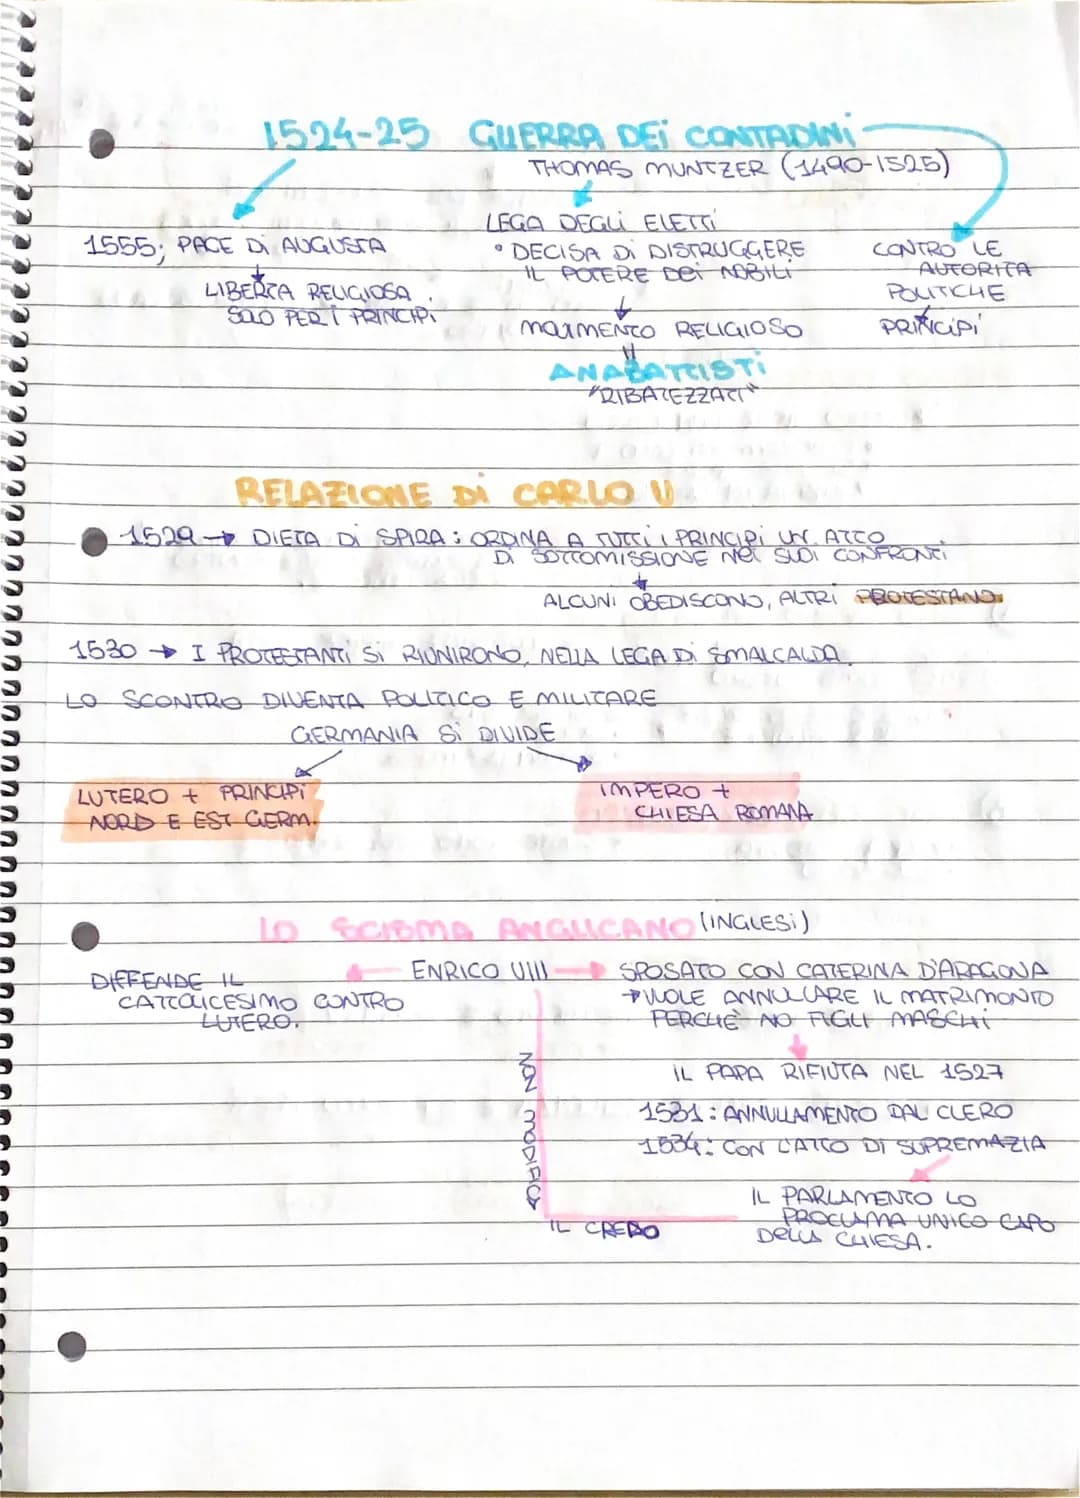 1524-25 GUERRA DEI CONTADINI
THOMAS MUNTZER (1490-1525)
1555; PACE DI AUGUSTA
LIBERTA RELIGIOSA
SOLO PER I PRINCIPI
LEGA DEGLI ELETTI
• DECISA DI DISTRUGGERE
IL POTERE DEI NOBILI
MOVIMENTO RELIGIOSO
ANABATTISTI
"RIBATEZZATI"
CONTRO LE
AUTORITA
POLITCHE
PRINCIPI
RELAZIONE DI CARLO V
1529 → DIETA DI SPIRA: ORDINA A TUTTI I PRINCIPI UN ATTO
DI SOTTOMISSIONE NEI SUOI CONFRONTI
ALCUNI OBEDISCONO, ALTRI PROTESTANO.
1530 → I PROTESTANTI SI RIUNIRONO, NELLA LEGA DI SMALCALDA.
LO SCONTRO DIVENTA POLITICO E MILITARE
GERMANIA SI DIVIDE
LUTERO + PRINCIPI
NORD E EST GERM.
IMPERO +
CHIESA ROMANA
LO SCISMA ANGLICANO (INGLESI)
DIFFENDE IL
CATTOLICESIMO CONTRO
LUTERO.
ENRICO VIII
SPOSATO CON CATERINA D'ARAGONA
→ VUOLE ANNULLARE IL MATRIMONIO
PERCHÈ NO FIGLI MASCHI
IL PAPA RIFIUTA NEL 1527
1531: ANNULLAMENTO DAL CLERO
1534: CON L'ATTO DI SUPREMAZIA
IL PARLAMENTO LO
PROCLAMA UNICO CAPO
DELLA CHIESA.
NON MODIFICA
IL CREDO